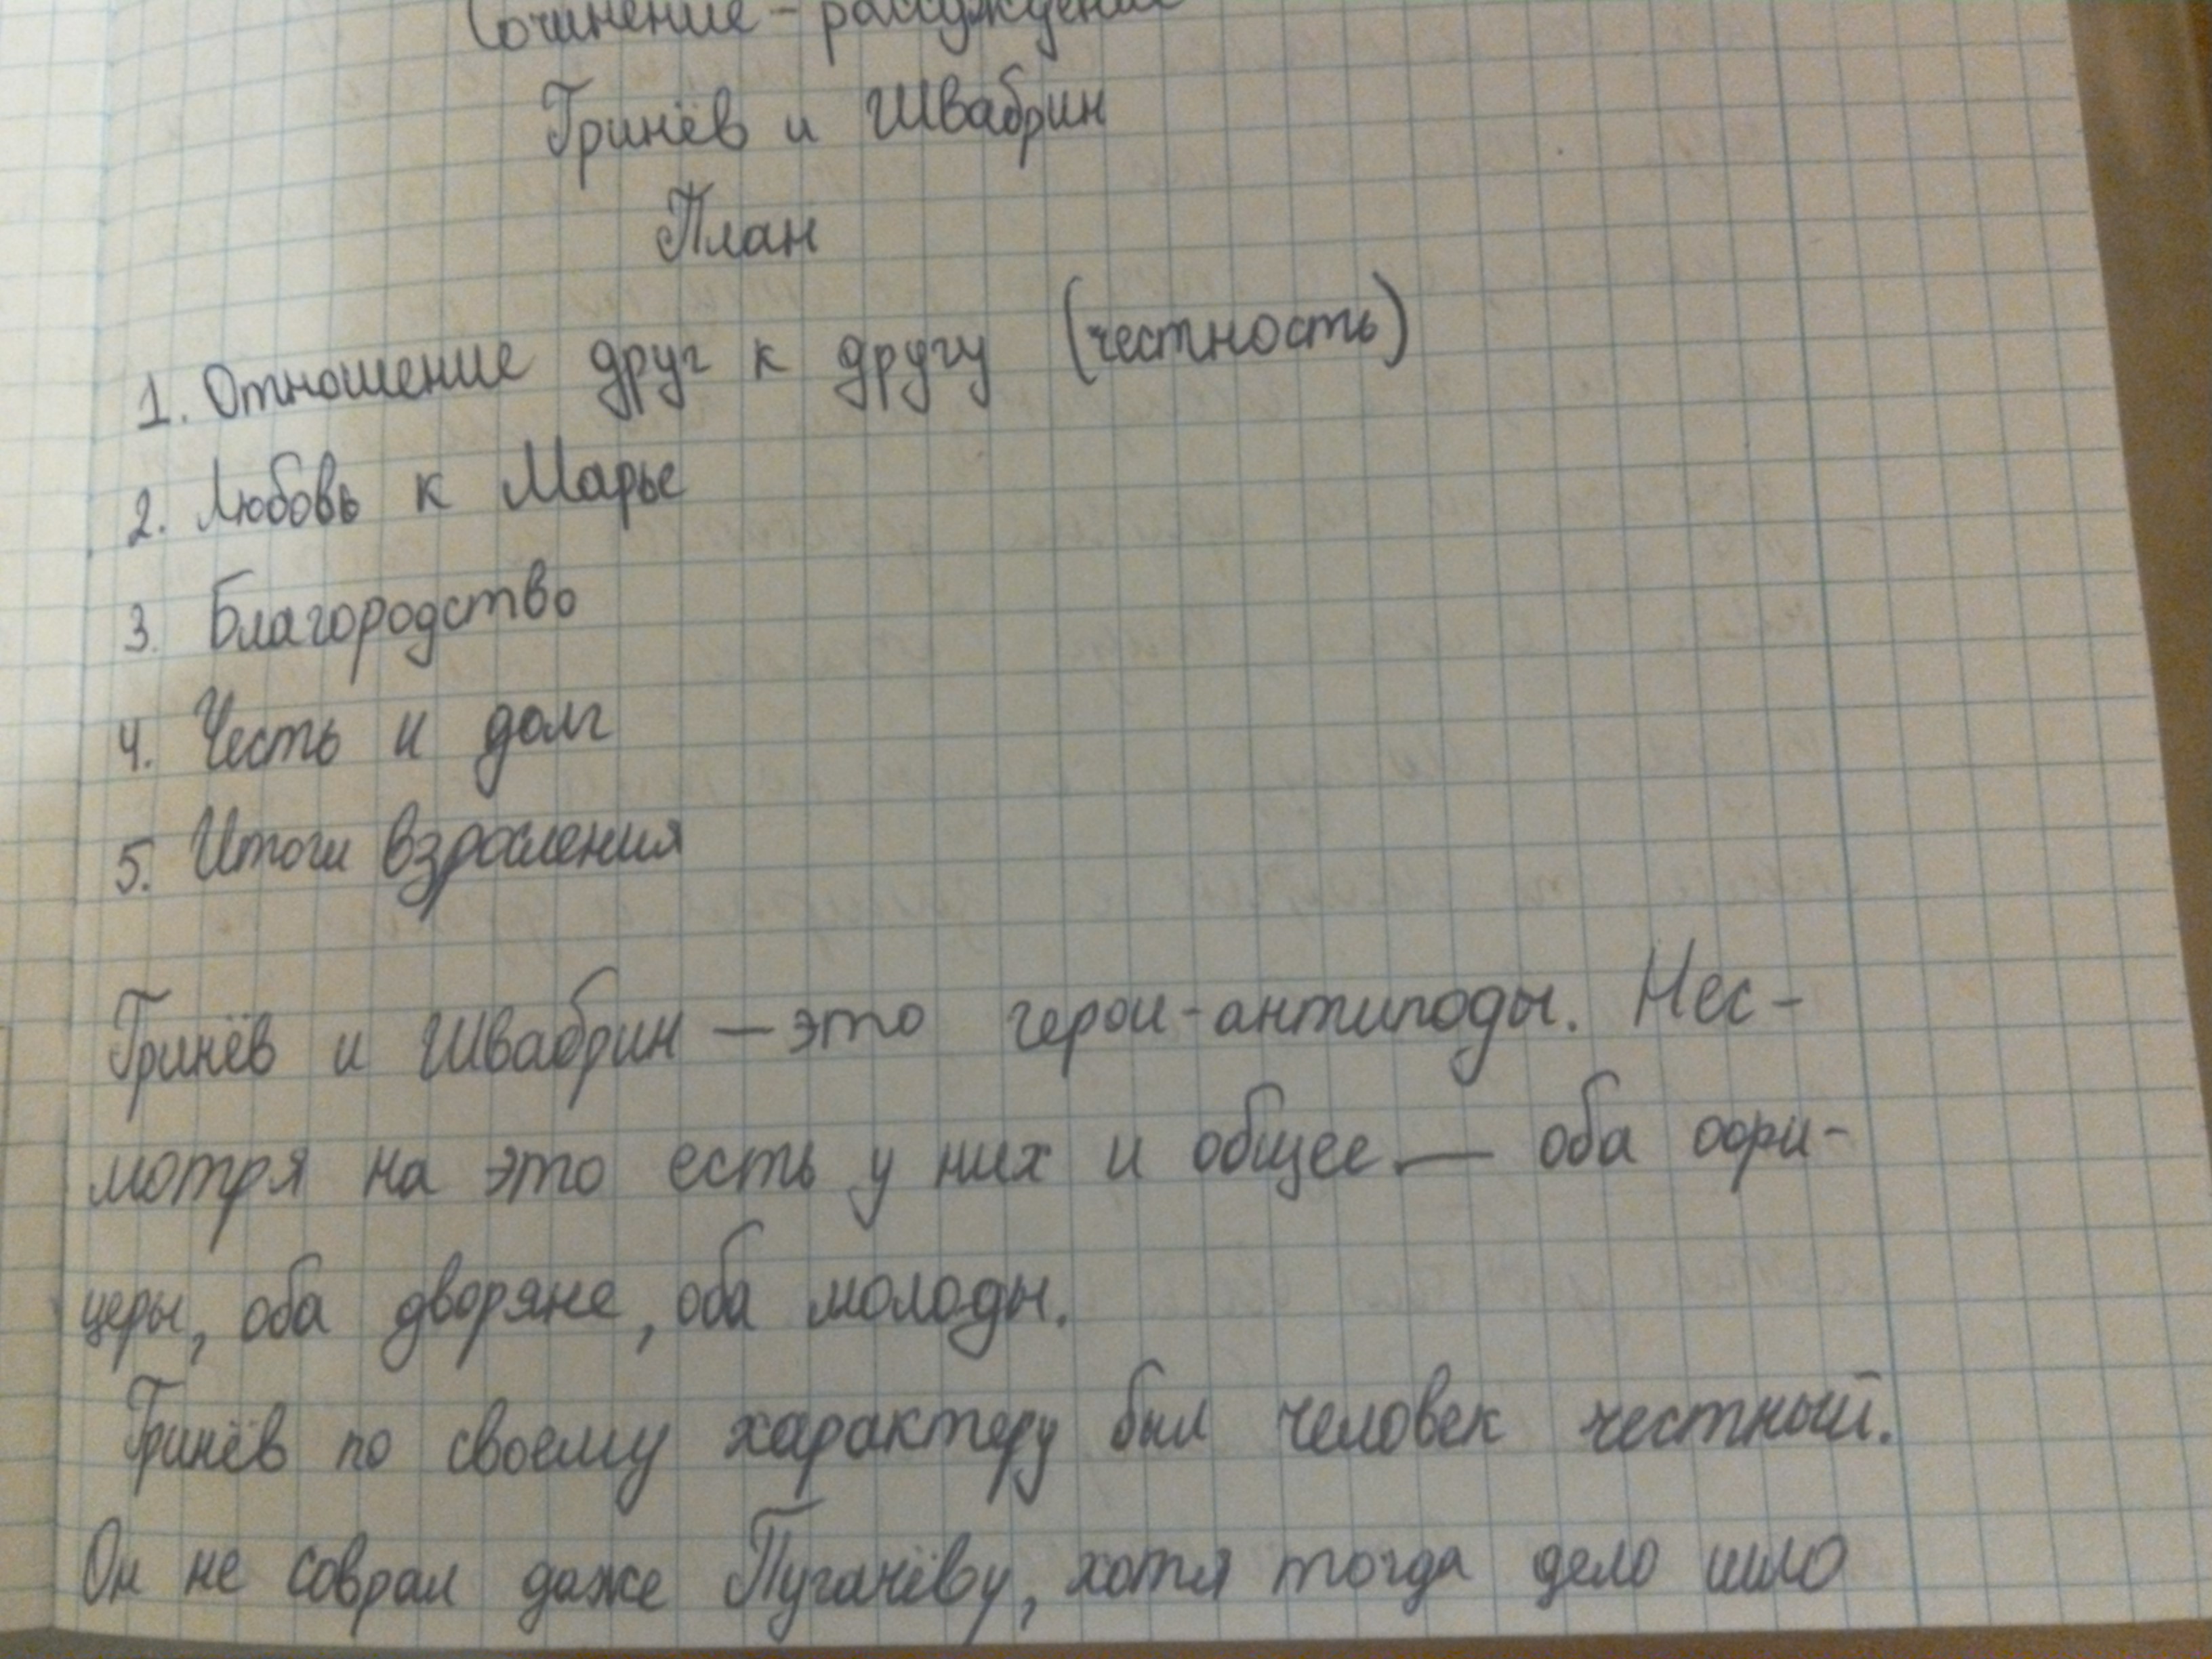 Сочинение - рассуждение
Гринёв и Швабрин
План
1. Отношение друг к другу (честность)
2. Любовь к Марье
3. Благородство
4. Честь и долг
5. Итоги взросления
Гринёв и Швабрин — это герои-антиподы. Нес-
мотря на это есть у них и общее — оба офи-
церы, оба дворяне, оба молоды.
Гринёв по своему характеру был человек честный.
Он не соврал даже Пугачёву, хотя тогда дело шло